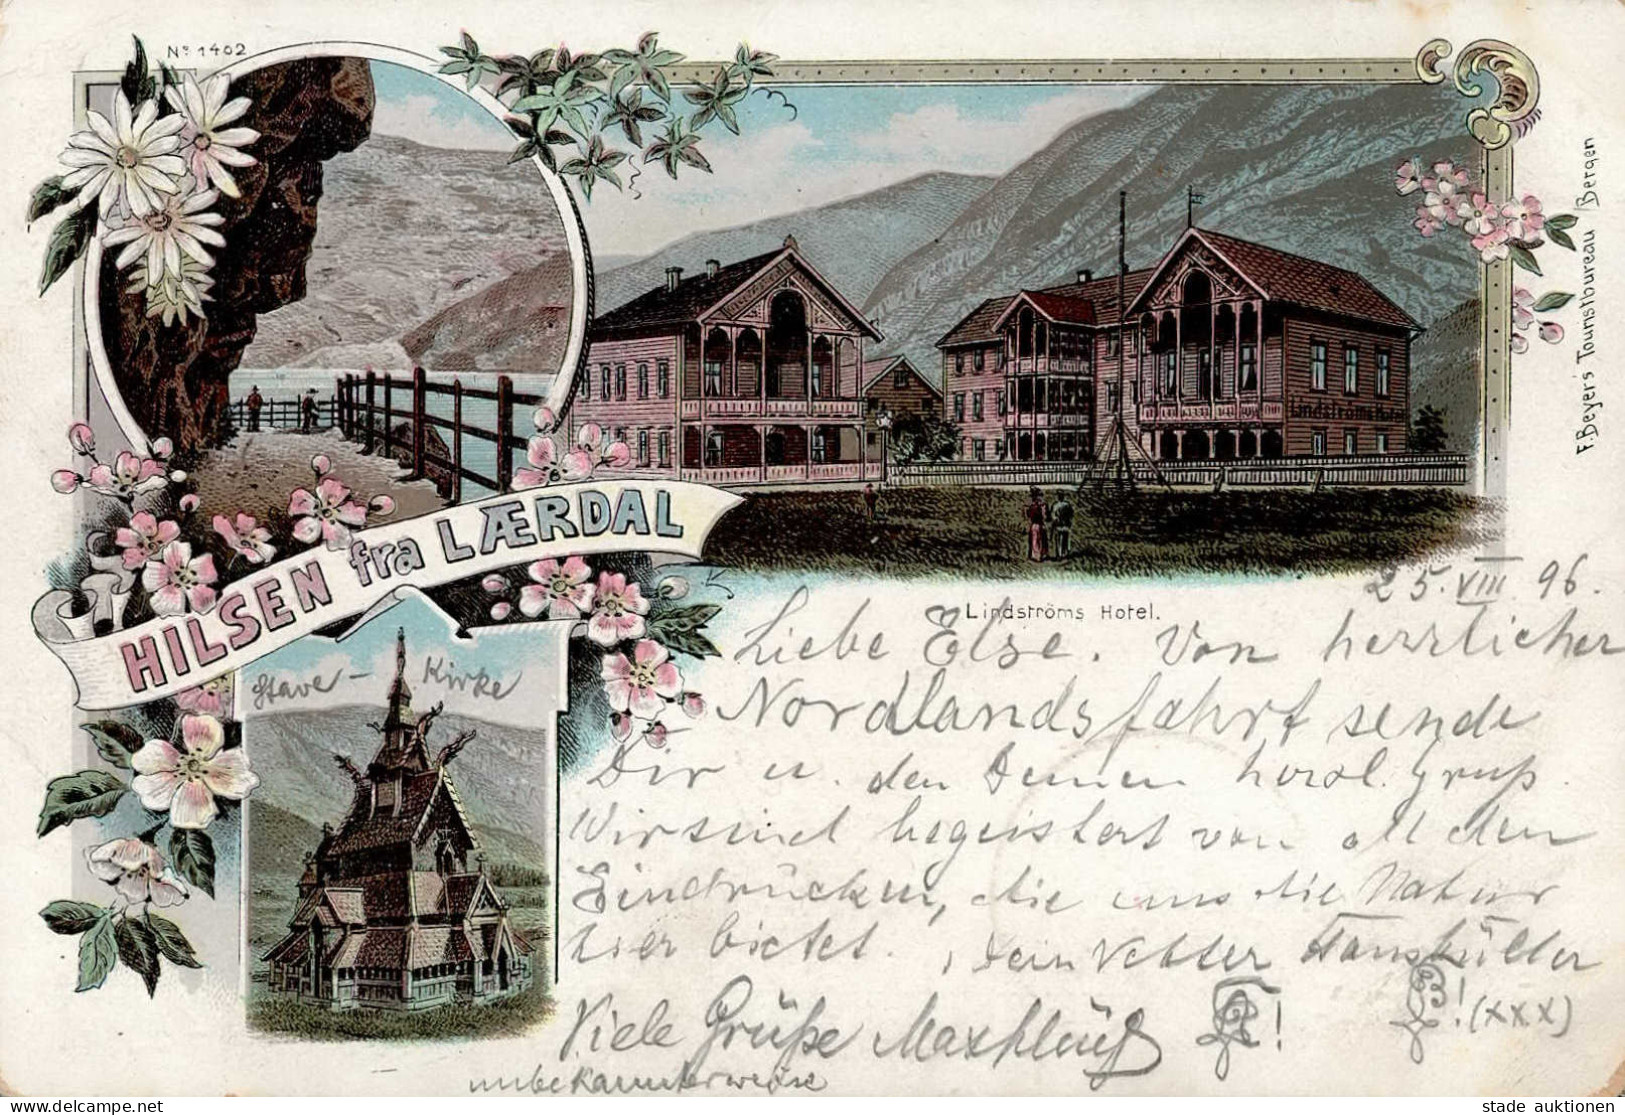 Nº 1402
F. Beyer's Touristbureau Bergen
HILSEN fra LÆRDAL
Lindströms Hotel
Lindströms Hotel.
Stave-Kirke
25. VIII. 96.
Liebe Else. Von herrlicher
Nordlandsfahrt sende
Dir u. den Deinen herzl. Gruß.
Wir sind begeistert von all den
Eindrücken, die uns die Natur
hier bietet. Dein Vetter
Viele Grüße Max
unbekannterweise
(xxx)
stade auktionen